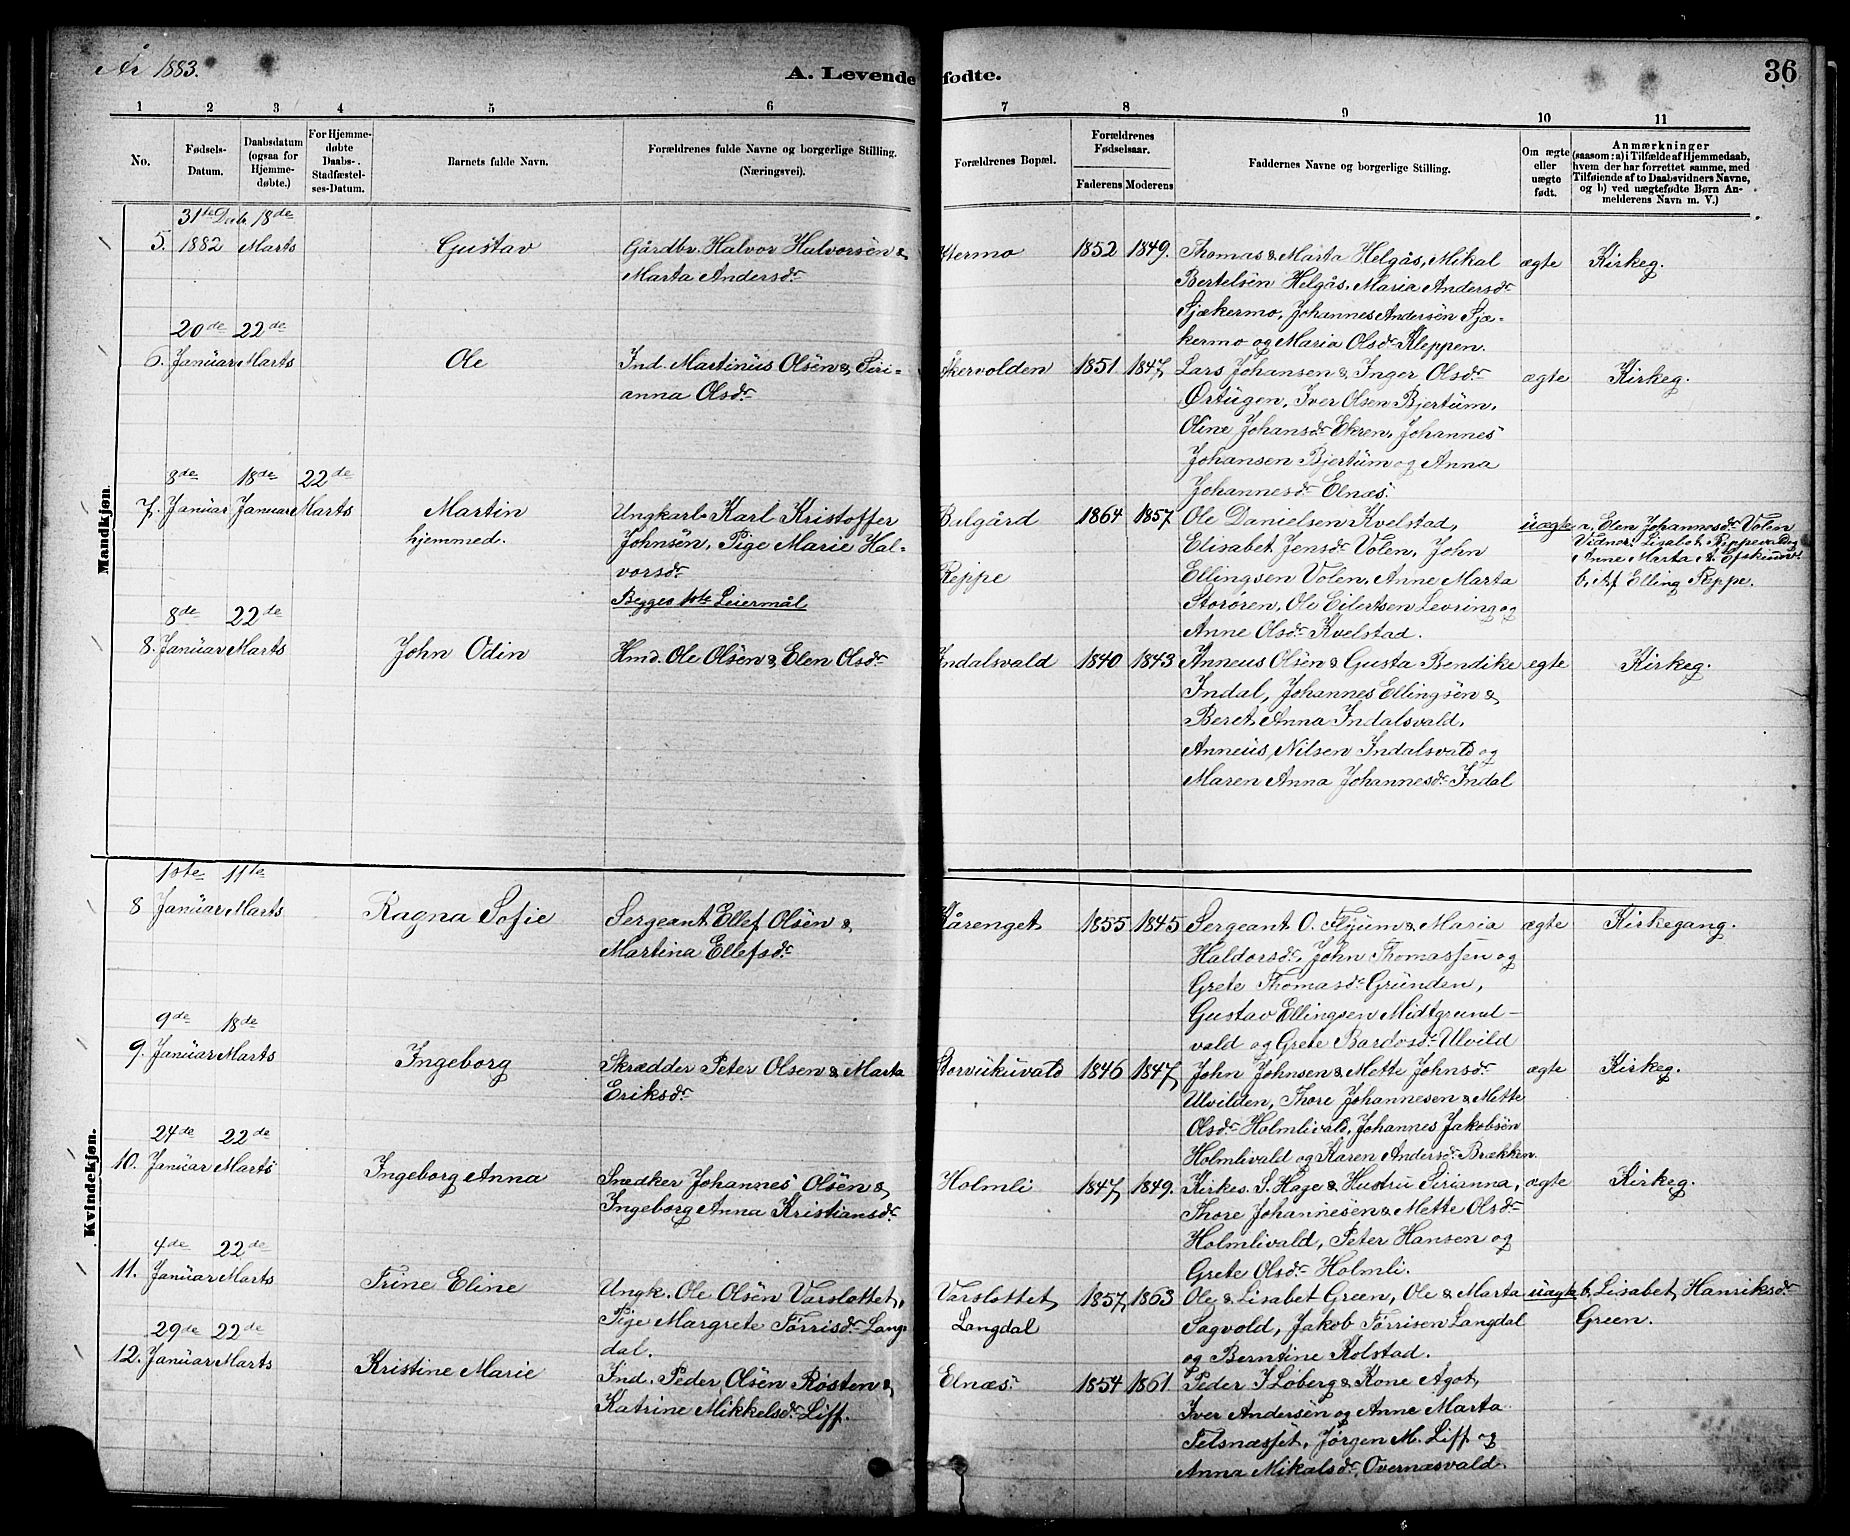 År 1883.
A. Levende fødte.
36
1 2 3 4 5 6 7 8 9 10 11
No.
Fødsels-
Datum.
Daabsdatum
(ogsaa for
Hjemme-
døbte.)
For Hjemme-
døbte
Daabs-.
Stadfæstel-
ses-Datum.
Barnets fulde Navn.
Forældrenes fulde Navne og borgerlige Stilling.
(Næringsvei).
Forældrenes Bopæl.
Forældrenes
Fødselsaar.
Faderens Moderens
Faddernes Navne og borgerlige Stilling.
Om ægte
eller
uægte
født.
Anmærkninger
(saasom: a) i Tilfælde af Hjemmedaab,
hvem der har forrettet samme, med
Tilføiende af to Daabsvidners Navne,
og b) ved uægtefødte Børn An-
melderens Navn m. V.)
Mandkjøn.
31te Dcb. 18de
5. 1882 Marts Gustav Gårdbr. Halvor Halvorsen &
Marta Andersdr
Kermo 1852 1849. Thomas & Marta Helgås, Mikal
Bertelsen Helgås, Maria Andersdr
Sjækermo, Johannes Andersen Sjæ-
kermo og Maria Olsdr Kleppen.
ægte Kirkeg.
20de 22de
6. Januar Marts Ole Ind. Martinus Olsen & Siri-
anna Olsdr
Åkervolden 1851 1847, Lars Johansen & Inger Olsdr
Ørtugen, Iver Olsen Bjertum,
Oline Johansdr Ekren, Johannes
Johansen Bjertum og Anna
Johannesdr Elnæs.
ægte Kirkeg.
8de 18de 22de
7. Januar Januar Marts Martin
hjemmed.
Ungkarl Karl Kristoffer
Johnsen, Pige Marie Hal-
vorsdr
Begges 1ste Leiermål
Balgård
Reppe
1864 1857 Ole Danielsen Kvelstad,
Elisabet Jensdr Volen, John
Ellingsen Volen, Anne Marta
Storøren, Ole Eilertsen Levring og
Anne Olsdr Kvelstad.
uægte a, Elen Johannesdr Volen
Vidner: Lisabet Reppevald og
Anne Marta A.
b, Af Elling Reppe.
8de 22de
8. Januar Marts John Odin Hmd. Ole Olsen & Elen Olsdr
Indalsvald 1840 1843 Anneus Olsen & Gusta Bendike
Indal, Johannes Ellingsen &
Beret Anna Indalsvald,
Anneus Nilsen Indalsvald og
Maren Anna Johannesdr Indal
ægte Kirkeg.
Kvindekjøn.
1ste 11te
8 Januar Marts Ragna Sofie Sergeant Ellef Olsen &
Martina Ellefsdr
Kårenget 1855 1845 Sergeant O. Flyum & Maria
Haldorsdr, John Thomassen og
Grete Thomasdr Grunden,
Gustav Ellingsen Midtgrund-
vald og Grete Bardosdr Ulvild
ægte Kirkegang.
9de 18de
9. Januar Marts Ingeborg Skrædder Peter Olsen & Marta
Eriksdr
Storvukuvald 1846 1847, John Johnsen & Mette Johnsdr
Ulvilden, Thore Johannesen & Mette
Olsdr Holmlivald, Johannes Jakobsen
Holmlivald og Karen Andersdr Brækken
ægte Kirkeg.
24de 22de
10. Januar Marts Ingeborg Anna Snedker Johannes Olsen &
Ingeborg Anna Kristiansdr
Holmli 1847, 1849. Kirkes. S. Hage & Hustru Sirianna,
Thore Johannesen & Mette Olsdr
Holmlivald, Peter Hansen og
Grete Olsdr Holmli.
ægte Kirkeg.
4de 22de
11. Januar Marts Trine Eline Ungk. Ole Olsen Varslottet,
Pige Margrete Tørrisdr Lang-
dal.
Varslottet,
Langdal
1857, 1863 Ole & Lisabet Green, Ole & Marta
Sagvold, Jakob Tørrisen Langdal
og Berntine Kolstad.
uægte b, Lisabet Hanriksdr
Green.
29de 22de
12. Januar Marts Kristine Marie Ind. Peder Olsen Røsten &
Katrine Mikkelsdr Liff.
Elnæs. 1854 1861. Peder I Løberg & Kone Agot,
Iver Andersen og Anne Marta
Telsnæsset, Jørgen M. Liff og
Anna Mikalsdr Overnæsvald.